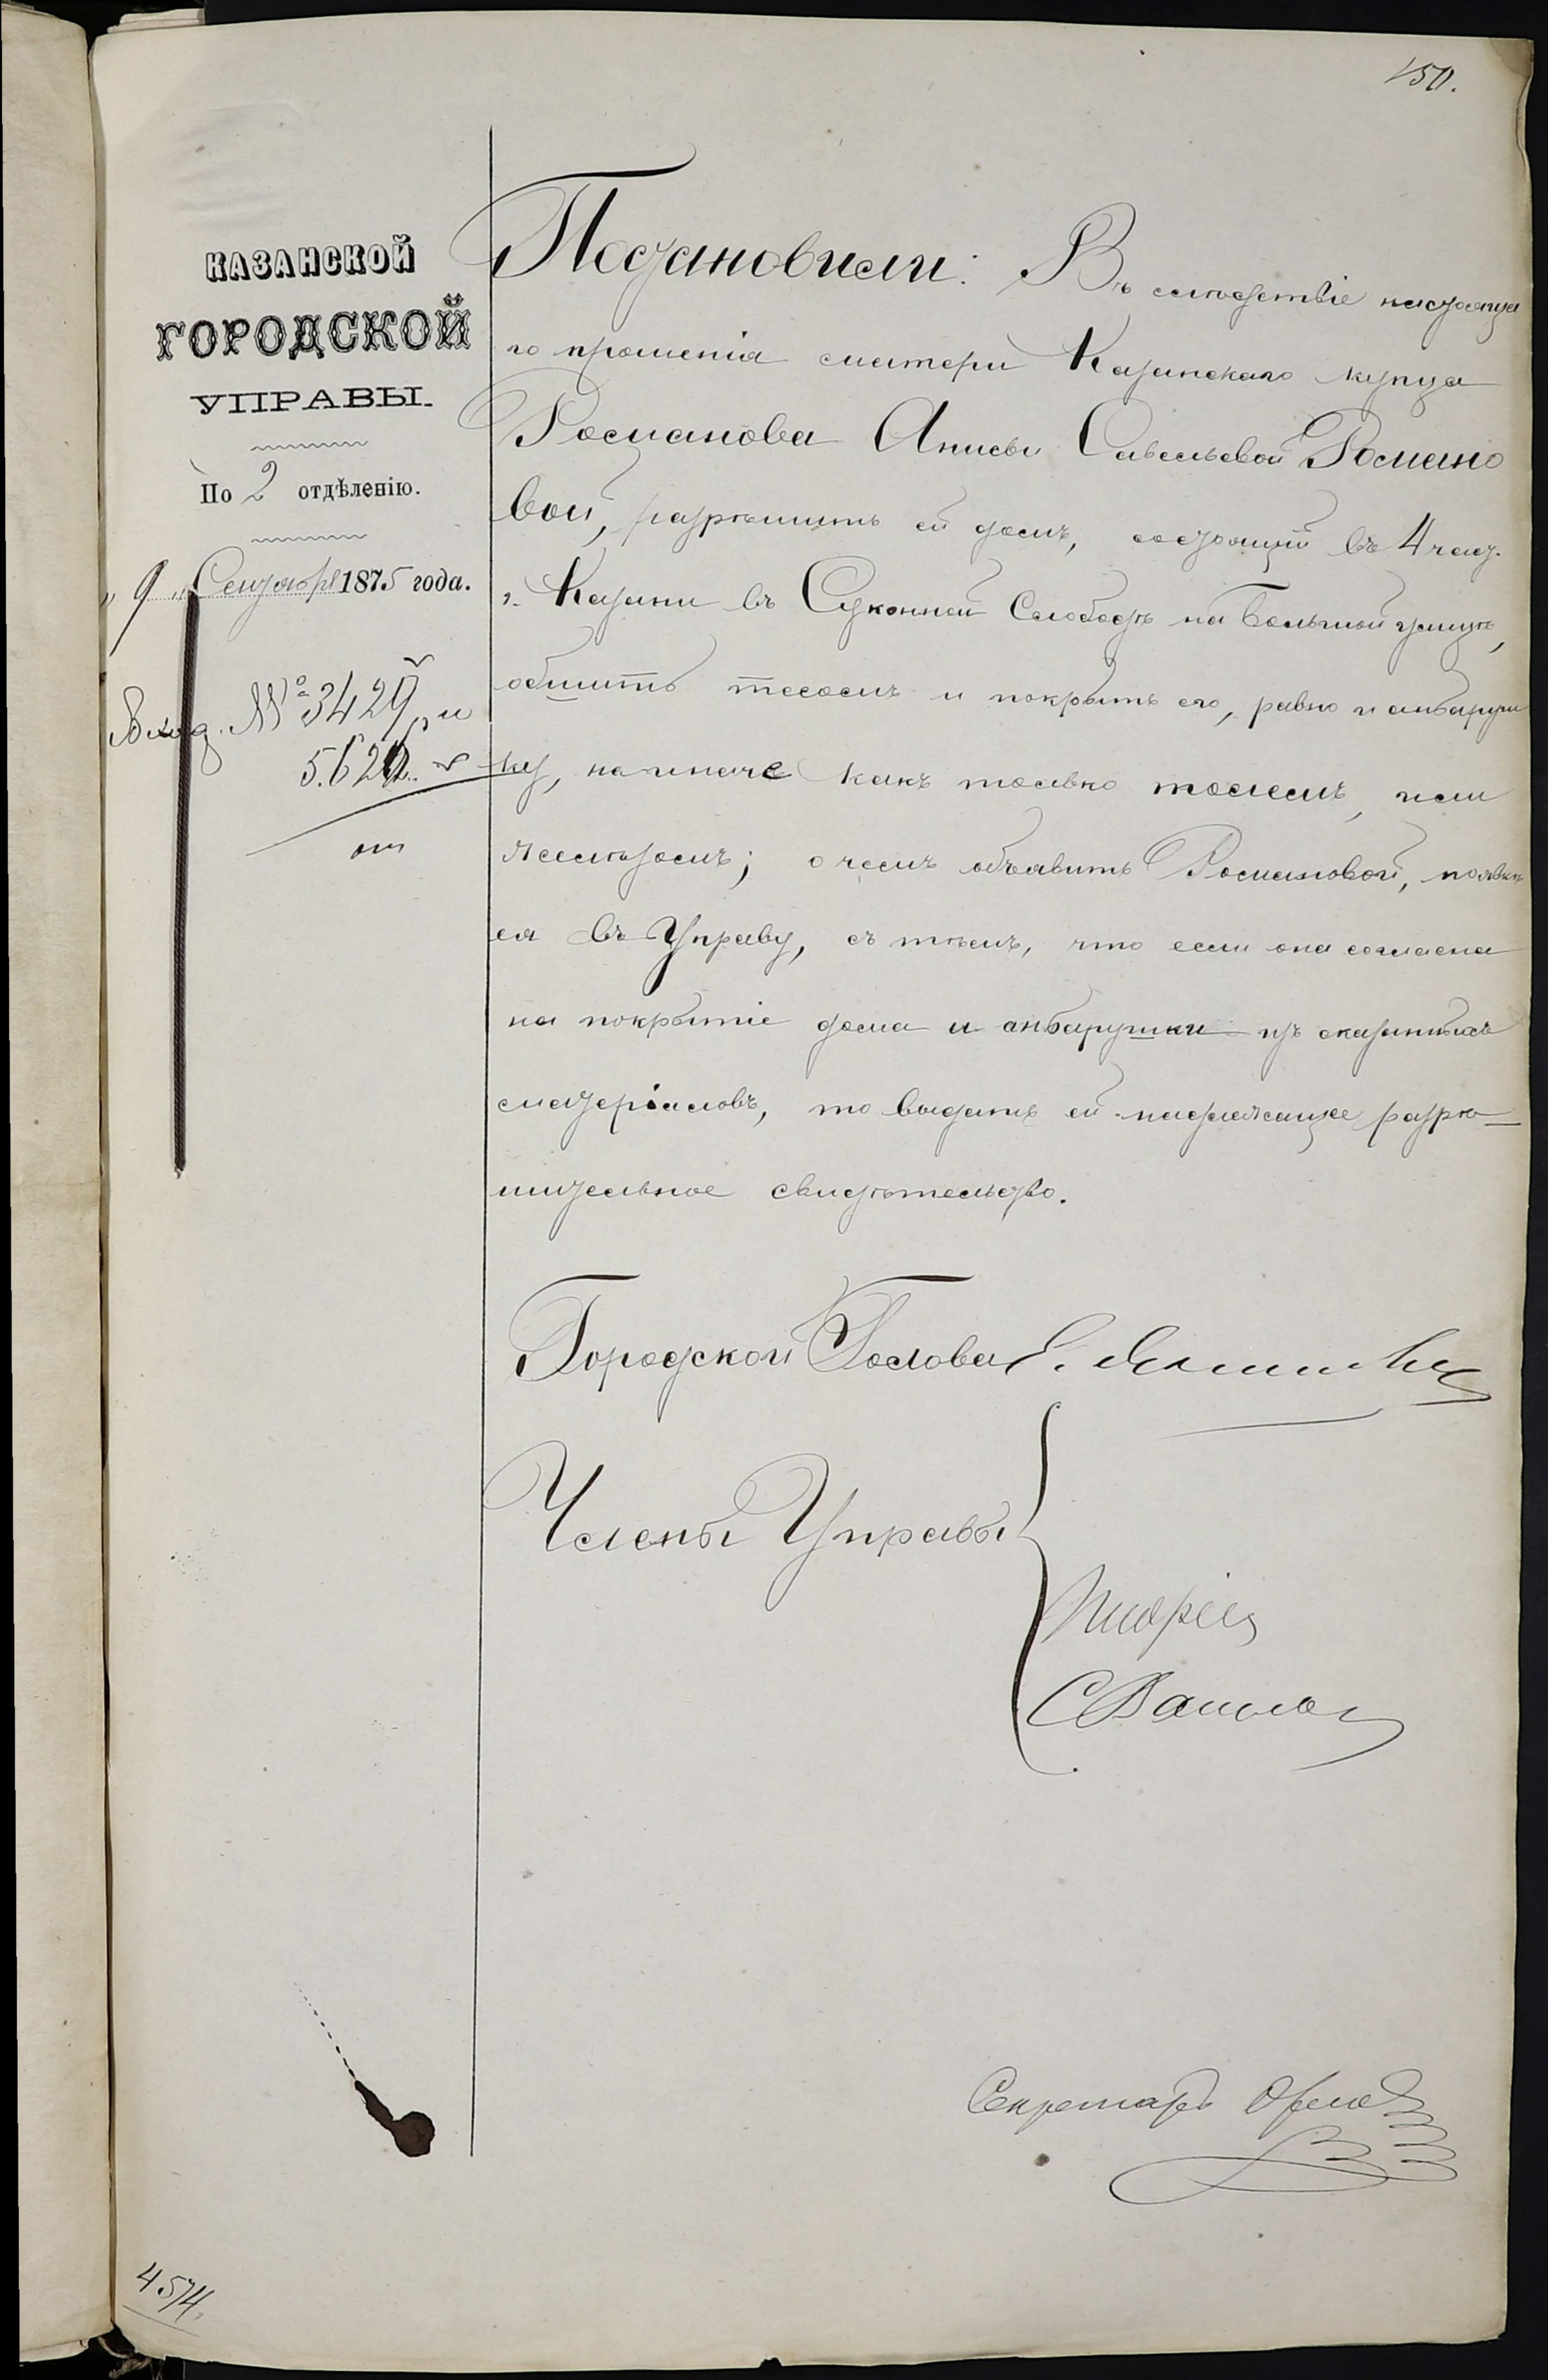 150.
КАЗАНСКОЙ
ГОРОДСКОЙ
УПРАВЫ.
По 2 отдѣленію.
„9„ Сентября 1875 года.
Вход. № 3429, и
5.626.
Постановили: Въ слѣдствіе настояща
го прошенія матери Казанскаго купца
Романова Анисьи Савельевой Романо
вой, разрѣшить ей домъ, состоящій въ 4 част.
г. Казани въ Суконной Слободѣ на Большой улицѣ,
обшить тесомъ и покрыть его, равно и анбаруш
ку, не иначе какъ только толемъ, или
желѣзомъ; о чемъ объявить Романовой, по явкѣ
ея въ Управу, съ тѣмъ, что если она согласна
на покрытіе дома и анбарушки изъ сказанныхъ
матеріаловъ, то выдать ей надлежащее разрѣ-
шительное свидѣтельство.
Городской Голова
Члены Управы
Секретарь Орлов
4574.